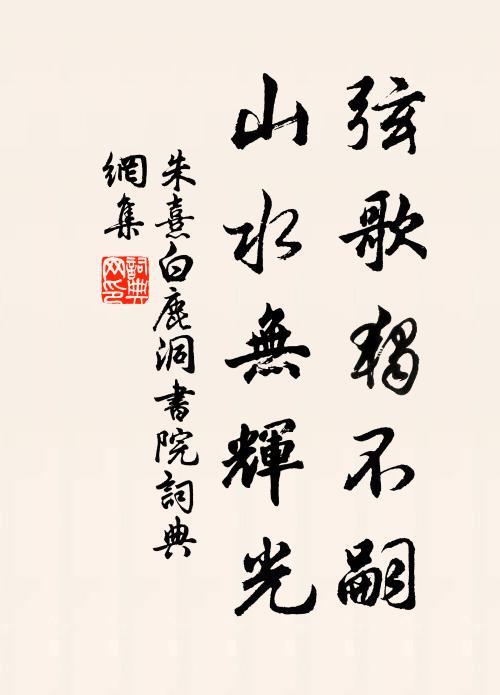 弦歌獨不嗣
山水無輝光
朱熹白鹿洞書院詞典
網集
詞典網印